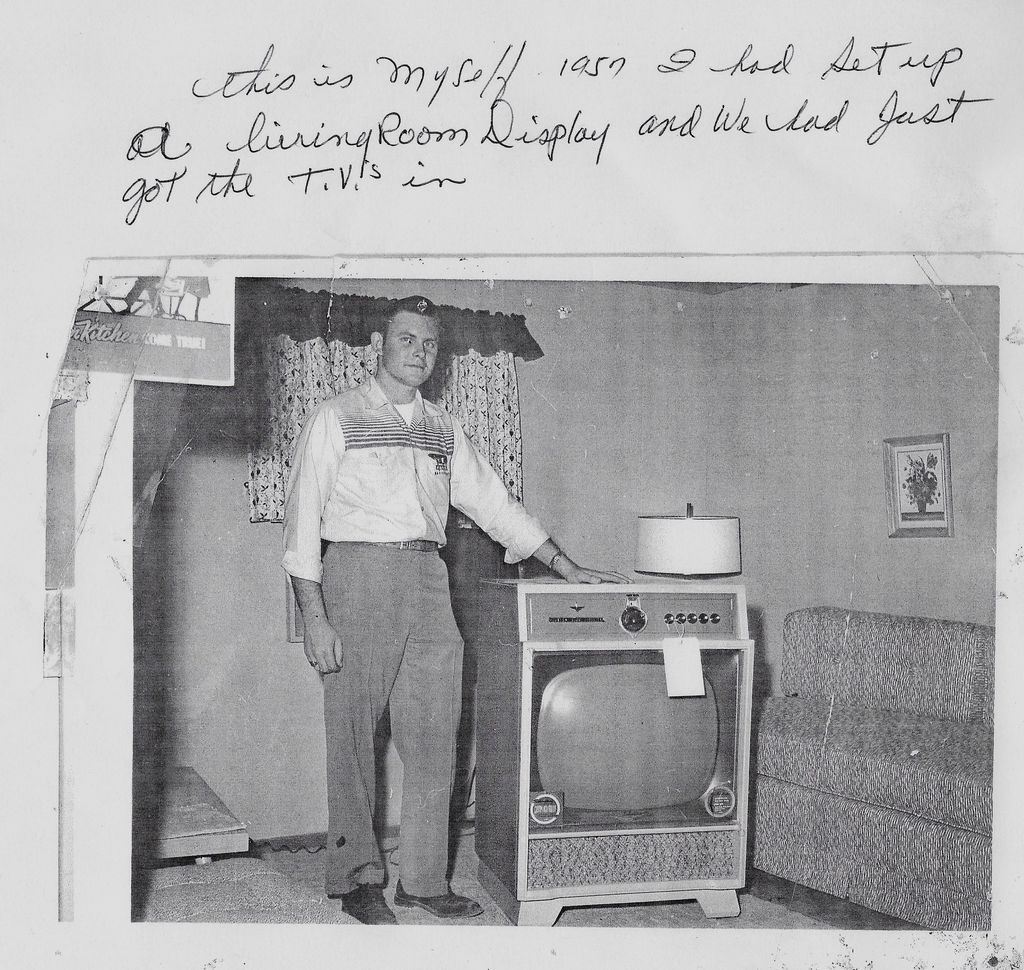 this is Myself 1957 I had set up
a living Room Display and We had Just
got the T.V.'s in
Kitchen